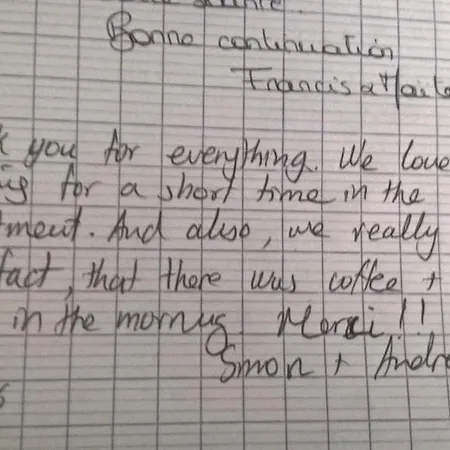 Bonne continuation
Francis
k you for everything. We love
for a short time in the
tment. And also, we really
fact, that there was coffee +
in the mornug. Merci!!
Simon + Andr